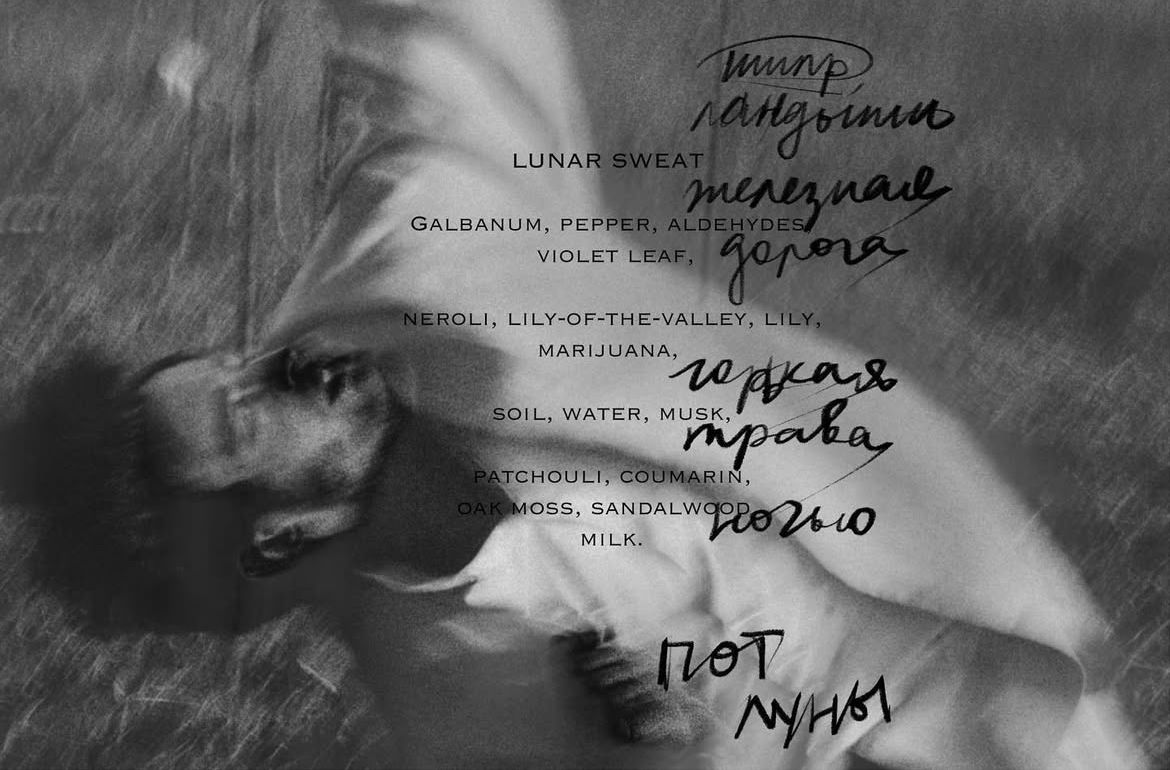 шипр
ландыши
LUNAR SWEAT
железная
GALBANUM, PEPPER, ALDEHYDES
дорога
VIOLET LEAF,
NEROLI, LILY-OF-THE-VALLEY, LILY,
MARIJUANA,
горькая
SOIL, WATER, MUSK,
трава
PATCHOULI, COUMARIN,
OAK MOSS, SANDALWOOD
ночью
MILK.
ПОТ
ЛУНЫ